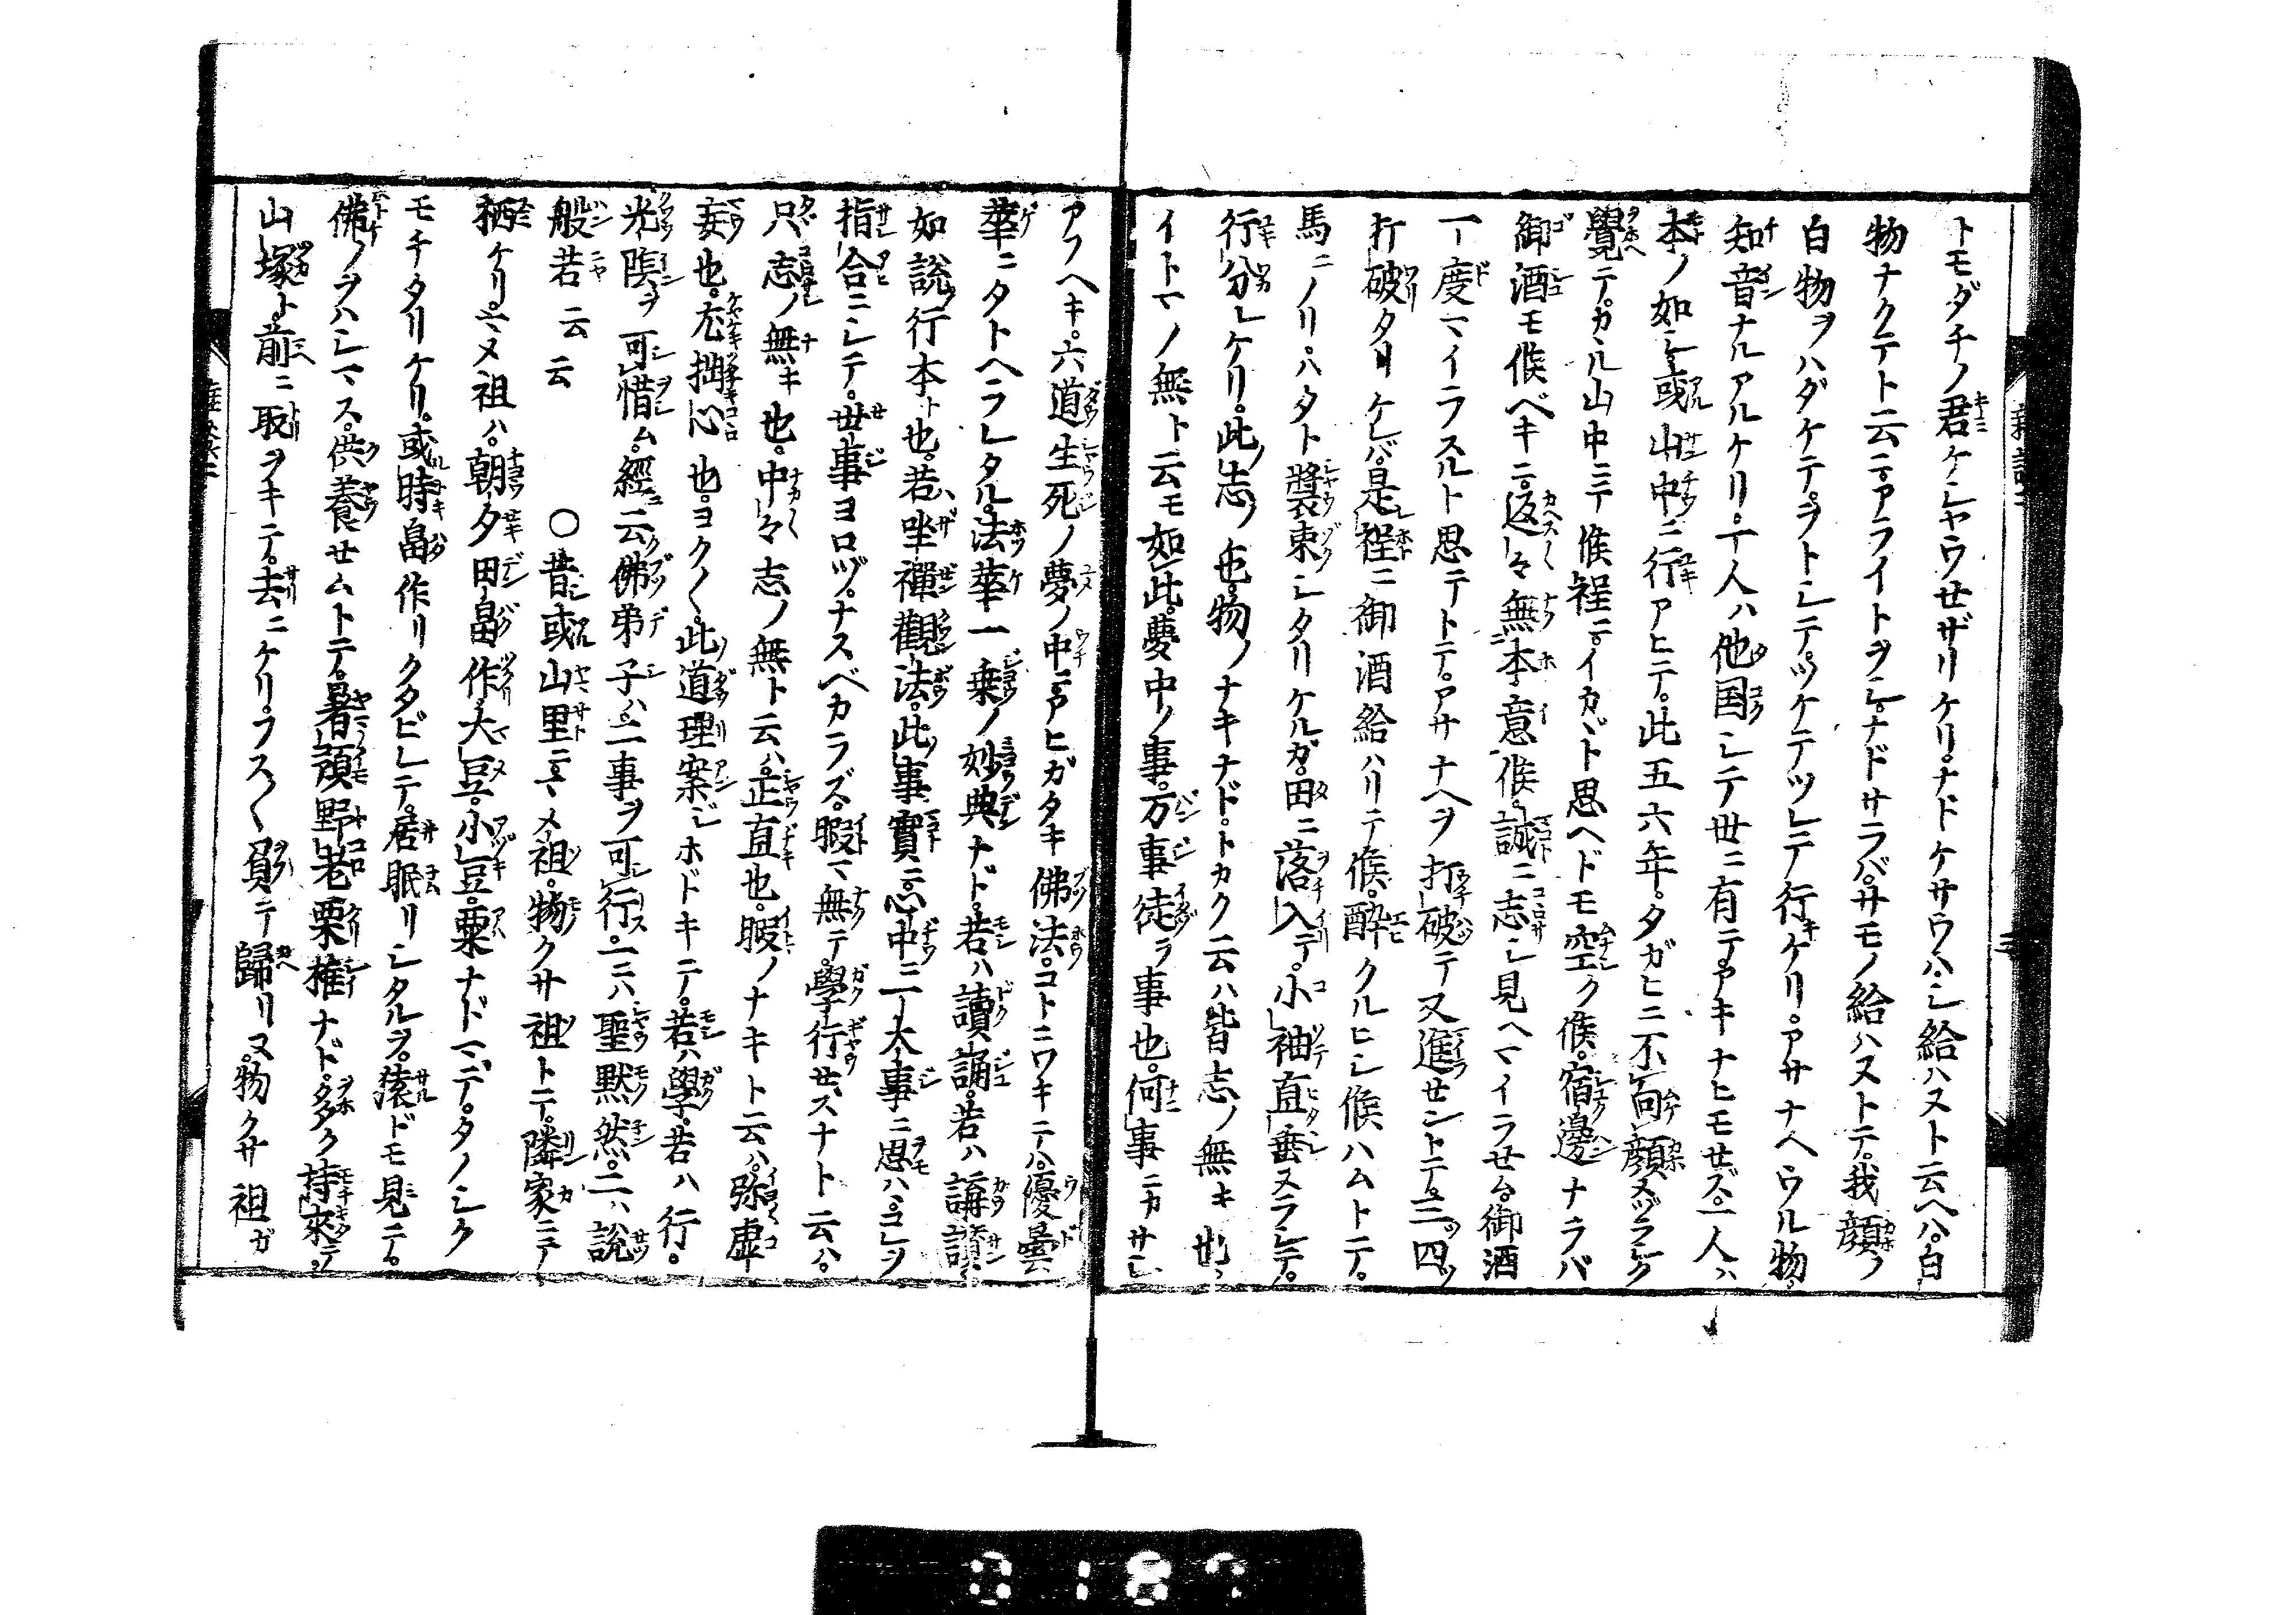 トモダチノ君ケシヤウせザリケリ。ナドケサウハシ給ハヌト云ヘハ。白
物ナクテト云。アライトヲシ。ナドサラバ。サモノ給ハストテ。我顔ノ
白物ヲハダケテ。ヲトシテ。ツケテツレテ行ケリ。アサナヘウル物。
知音ナルアルケリ。一人ハ他国シテ世ニ有テ。アキナヒモせズ。一人ハ
本ノ如シ。或山中ニ行アヒテ。此五六年。タガヒニ不向顔ヌヅラシク
覺テ。カヽル山中ニテ候程ニ。イカヾト思ヘドモ空ク候。宿邊ナラバ
御酒モ候ベキニ。返々無本意候。誠ニ志シ見ヘマイラせム。御酒
一度マイラスルト思テトテ。アサナヘヲ打破テ又進せントテ。三ツ四ツ
打破タリケレバ。是程ニ御酒給ハリテ候。酔クルヒシ候ハムトテ。
馬ニノリ。ハタト裝束シタリケルガ。田ニ落入テ。小袖直垂ヌラシテ。
行分レケリ。此志ノ也。物ノナキナド。トカク云ハ皆志ノ無キ也。
イトマノ無ト云モ如此。夢中ノ事。万事徒ラ事也。何事ニカサシ
アフヘキ。六道生死ノ夢ノ中ニ。アヒガタキ佛法。コトニワキテハ。優曇
華ニタトヘラレタル。法華一乗ノ妙典ナド。若ハ讀誦。若ハ講讃。
如説行本ト也。若ハ坐禪觀法。此事實ニ。忘中ニ一大事ニ思ハヾ。コレヲ
指合ニシテ。世事ヨロヅ。ナスベカラズ。暇マ無テ。學行せヌナト云ハ。
只志ノ無キ也。中々志ノ無ト云ハ。正直也。暇ノナキト云ハ。弥虚
妄也。尤拗心也。ヨク〱此道理案シホドキテ。若ハ學。若ハ行。
光陰ヲ可惜ム。經云佛弟子ハ。二事ヲ可行。一ニハ聖黙然。二ハ説
般若云云　〇昔或山里ニ。マメ祖。物クサ祖トテ。隣家ニア
栖ケリ。マメ祖ハ。朝夕田畠作。大豆。小豆。粟ナドマデ。タノシク
モチタリケリ。或時畠作リクタビレテ。居眠リシタルヲ。猿ドモ見テ。
佛ノヲハシマス。供養せムトテ。暑預野老栗椎ナド。多ク持來テ。
山塚ト。前ニ取ヲキテ。去ニケリ。ヌス〱負テ歸リヌ。物クサ祖ガ
0187